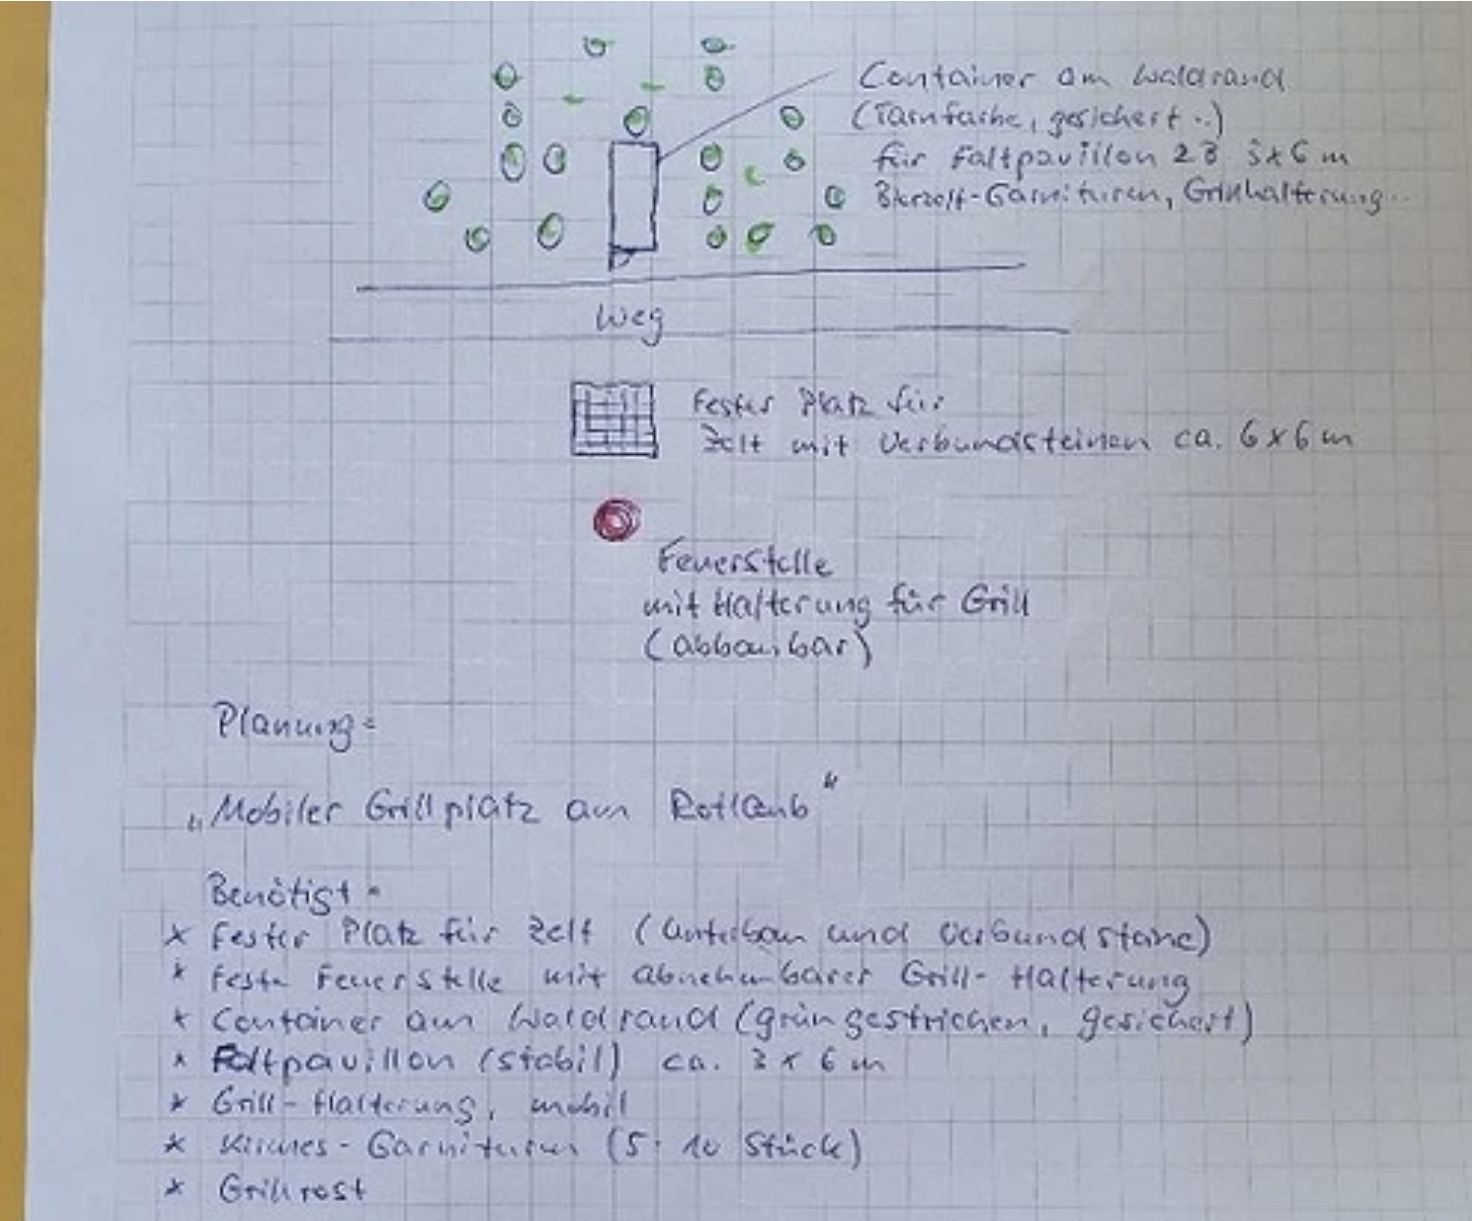 Container am Waldrand
(Tarnfarbe, gesichert..)
für Faltpavillon z B 3x6 m
Bierzelt-Garnituren, Grillhalterung..
Weg
Fester Platz für
Zelt mit Verbundsteinen ca. 6x6 m
Feuerstelle
mit Halterung für Grill
(abbaubar)
Planung:
„Mobiler Grillplatz am Rotlaub“
Benötigt:
* Fester Platz für Zelt (Unterbau und Verbundsteine)
* Feste Feuerstelle mit abnehmbarer Grill-Halterung
* Container am Waldrand (grün gestrichen, gesichert)
* Faltpavillon (stabil) ca. 3 x 6 m
* Grill-Halterung, mobil
* Kirmes-Garnituren (5-10 Stück)
* Grillrost